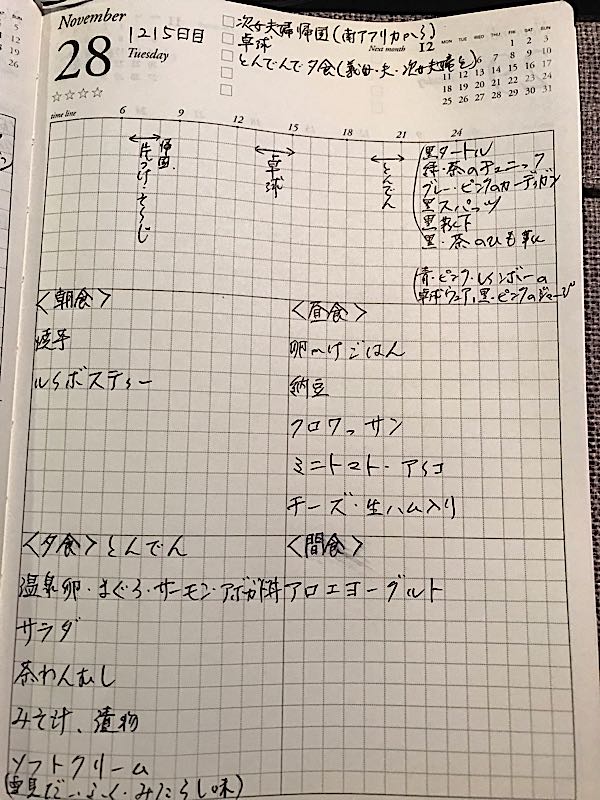 November
28
1215日目
Tuesday
次女夫婦帰国(南アフリカから)
卓球
とんでんで夕食(義母・夫・次女夫婦と)
Next month 12
MON TUE WED THU FRI SAT SUN
1 2 3
4 5 6 7 8 9 10
11 12 13 14 15 16 17
18 19 20 21 22 23 24
25 26 27 28 29 30 31
☆☆☆☆
time line 6 9 12 15 18 21 24
帰国、
片づけ・そうじ
卓球
とんでん
(黒タートル
緑・茶のチュニック
ブルー・ピンクのカーディガン
黒スパッツ
黒靴下
黒・茶のひも靴
(青・ピンク・レインボーの
卓球ウェア,黒・ピンクのジャージ
<朝食>
焼芋
ルイボスティー
<昼食>
卵かけごはん
納豆
クロワッサン
ミニトマト・アボカド
チーズ・生ハム入り
<夕食>とんでん
温泉卵・まぐろ・サーモン・アボカド丼
サラダ
茶わんむし
みそ汁、漬物
ソフトクリーム
(雪見だいふく・みたらし味)
<間食>
アロエヨーグルト